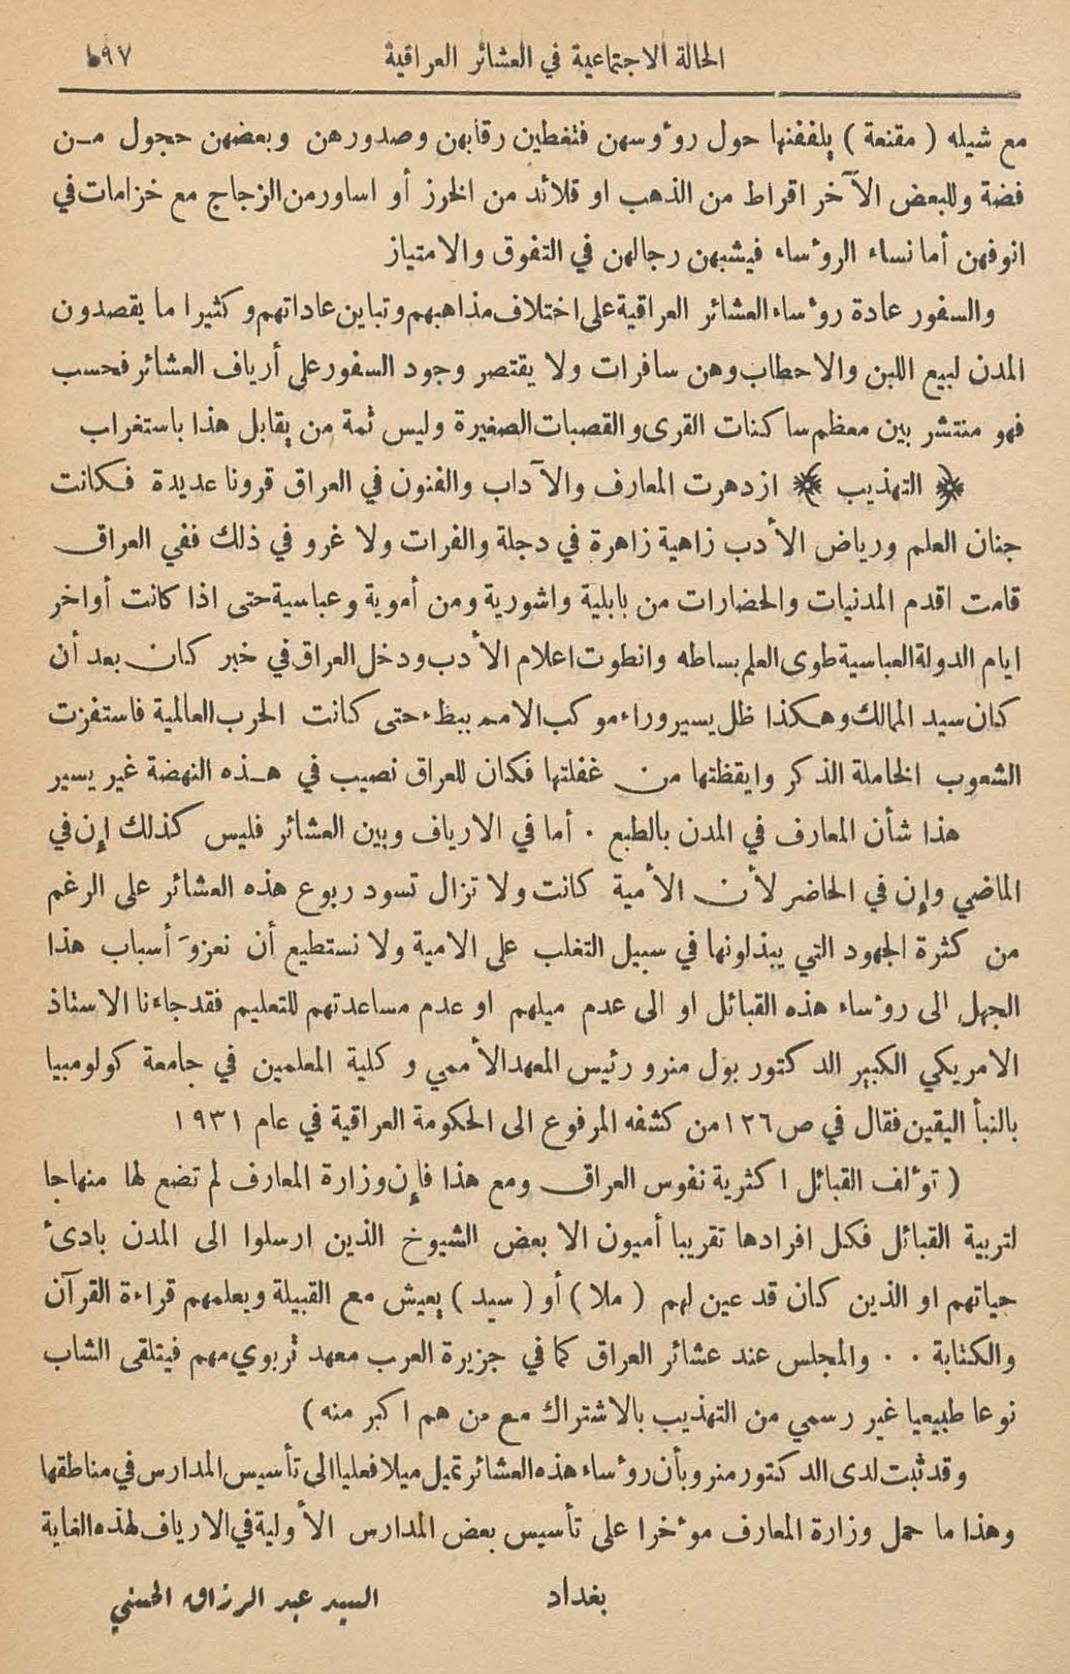 الحالة الاجتماعية في العشائر العراقية
مع شيله ( مقنعة ) يلففنها حول رؤوسهن فتغطين رقابهن وصدورهن وبعضهن حجول من
فضة وللبعض الآخر اقراط من الذهب او قلائد من الخرز أو اساور من الزجاج مع خزامات في
انوفهن أما نساء الرؤساء فيشبهن رجالهن في التفوق والامتياز
والسفور عادة رؤساء العشائر العراقية على اختلاف مذاهبهم وتباين عاداتهم وكثيرا ما يقصدون
المدن لبيع اللبن والاحطاب وهن سافرات ولا يقتصر وجود السفور على أرياف العشائر فحسب
فهو منتشر بين معظم ساكنات القرى والقصبات الصغيرة وليس ثمة من يقابل هذا باستغراب
﴿ التهذيب ﴾ ازدهرت المعارف والآداب والفنون في العراق قرونا عديدة فكانت
جنان العلم ورياض الأدب زاهية زاهرة في دجلة والفرات ولا غرو في ذلك ففي العراق
قامت اقدم المدنيات والحضارات من بابلية واشورية ومن أموية وعباسية حتى اذا كانت أواخر
ايام الدولة العباسية طوى العلم بساطه وانطوت اعلام الأدب ودخل العراق في خبر كان بعد أن
كان سيد الممالك وهكذا ظل يسير وراء موكب الامم ببطء حتى كانت الحرب العالمية فاستفزت
الشعوب الخاملة الذكر وايقظتها من غفلتها فكان للعراق نصيب في هذه النهضة غير يسير
هذا شأن المعارف في المدن بالطبع . أما في الارياف وبين العشائر فليس كذلك إن في
الماضي وإن في الحاضر لأن الأمية كانت ولا تزال تسود ربوع هذه العشائر على الرغم
من كثرة الجهود التي يبذلونها في سبيل التغلب على الامية ولا نستطيع أن نعزوَ أسباب هذا
الجهل الى رؤساء هذه القبائل او الى عدم ميلهم او عدم مساعدتهم للتعليم فقد جاءنا الاستاذ
الامريكي الكبير الدكتور بول منرو رئيس المعهد الأممي وكلية المعلمين في جامعة كولومبيا
بالنبأ اليقين فقال في ص ١٢٦ من كشفه المرفوع الى الحكومة العراقية في عام ١٩٣١
( تؤلف القبائل اكثرية نفوس العراق ومع هذا فإن وزارة المعارف لم تضع لها منهاجا
لتربية القبائل فكل افرادها تقريبا أميون الا بعض الشيوخ الذين ارسلوا الى المدن بادئ
حياتهم او الذين كان قد عين لهم ( ملا ) أو ( سيد ) يعيش مع القبيلة ويعلمهم قراءة القرآن
والكتابة . . والمجلس عند عشائر العراق كما في جزيرة العرب معهد تربوي مهم فيتلقى الشاب
نوعا طبيعيا غير رسمي من التهذيب بالاشتراك مع من هم اكبر منه )
وقد ثبت لدى الدكتور منرو بأن رؤساء هذه العشائر تميل ميلا فعليا الى تأسيس المدارس في مناطقها
وهذا ما حمل وزارة المعارف مؤخرا على تأسيس بعض المدارس الأولية في الارياف لهذه الغاية
بغداد السيد عبد الرزاق الحسني